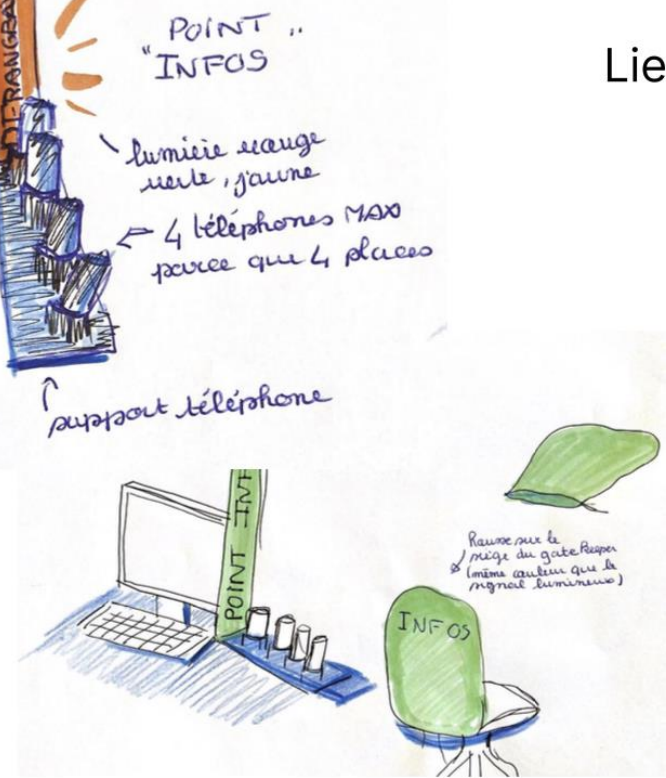 POINT
"INFOS"
Lie
lumière rouge
verte, jaune
4 téléphones MAX
parce que 4 places
support téléphone
POINT INF
Housse sur le
siège du gate keeper
(même couleur que le
signal lumineux)
INFOS